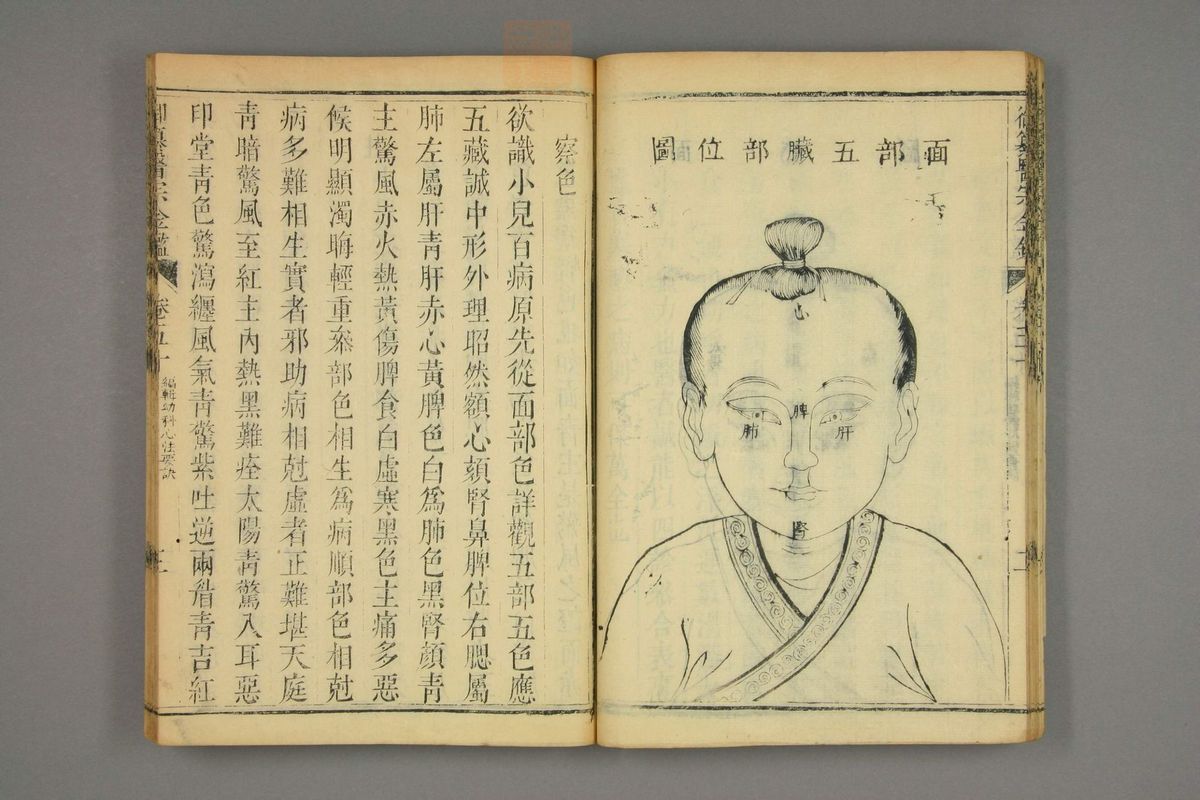 御纂醫宗金鑑
面部五臟部位圖
心
脾
肝
肺
腎
察色
欲識小兒百病原先從面部色詳觀五部五色應
五藏誠中形外理昭然額心頦腎鼻脾位右腮屬
肺左屬肝青肝赤心黃脾色白爲肺色黑腎顏青
主驚風赤火熱黃傷脾食白虛寒黑色主痛多惡
候明顯濁晦輕重叅部色相生爲病順部色相尅
病多難相生實者邪助病相尅虛者正難堪天庭
青暗驚風至紅主內熱黑難痊太陽青驚入耳惡
印堂青色驚瀉纏風氣青驚紫吐逆兩眉青吉紅
御纂醫宗金鑑 卷五十 編輯幼科心法要訣